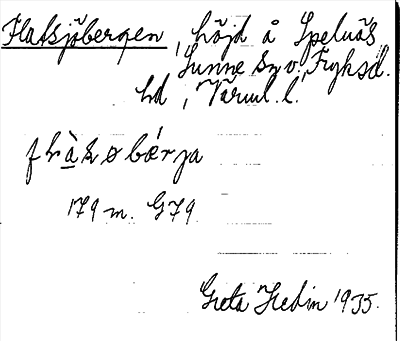 Flatsjöbergen, höjd å Spelnäs,
Sunne sn v., Fryksd.
hd, Värml. l.
179 m. G79
Greta Hedin 1935.